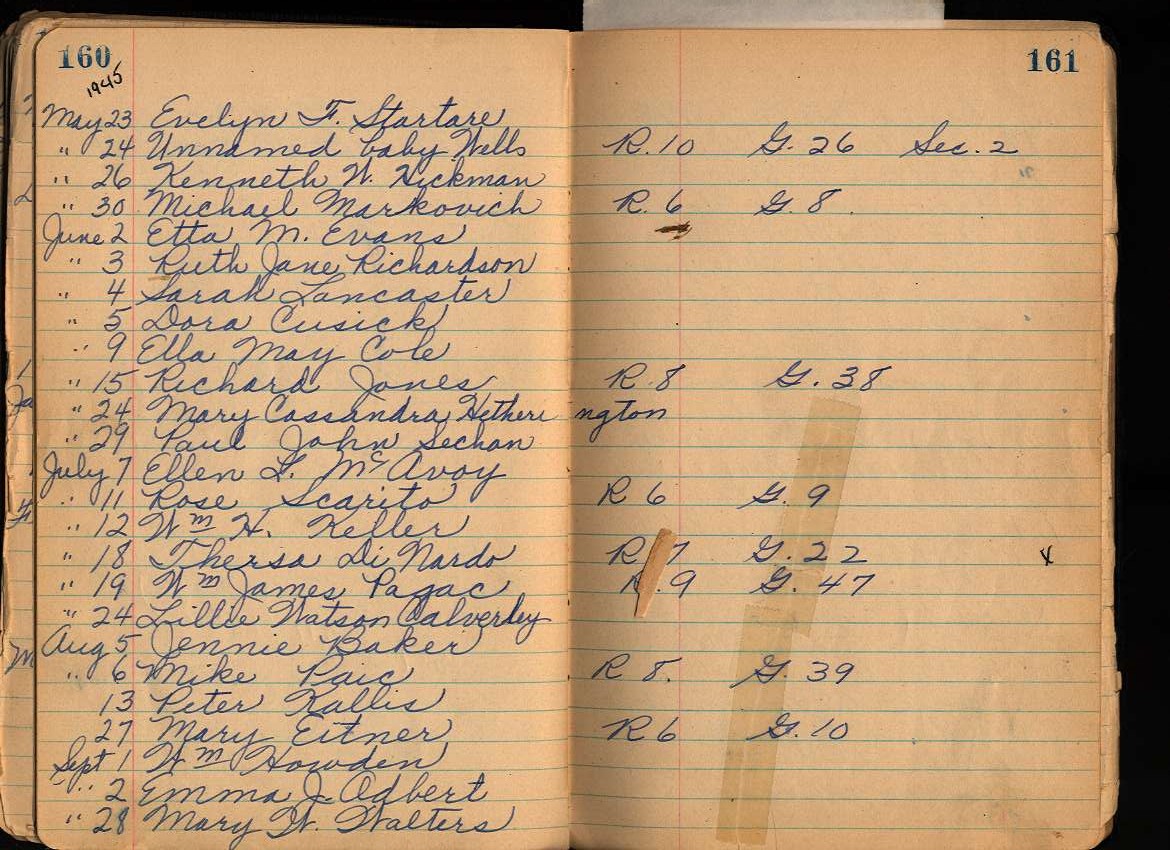 160 161
1945
May 23 Evelyn F. Startare
" 24 Unnamed baby Wells R. 10 G. 26 Sec. 2
" 26 Kenneth W. Hickman
" 30 Michael Markovich R. 6 G. 8
June 2 Etta M. Evans
" 3 Ruth Jane Richardson
" 4 Sarah Lancaster
" 5 Dora Cusick
" 9 Ella May Cole
" 15 Richard Jones R. 8 G. 38
" 24 Mary Cassandra Hetherington
" 29 Paul John Sechan
July 7 Ellen L. McAvoy
" 11 Rose Scarito R 6 G. 9
" 12 Wm H. Keller
" 18 Thersa Di Nardo R 7 G. 22 x
" 19 Wm James Pagac R. 9 G. 47
" 24 Lillie Watson Calverley
Aug 5 Jennie Baker
" 6 Mike Paic R 8. G. 39
13 Peter Kallis
27 Mary Eitner R 6 G. 10
Sept 1 Wm Howden
" 2 Emma J. Adbert
" 28 Mary W. Walters